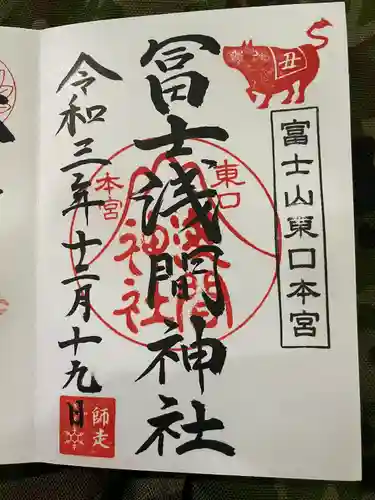 丑
富士山東口本宮
冨士浅間神社
東口
本宮
浅間
神社
令和三年十二月十九日
師走